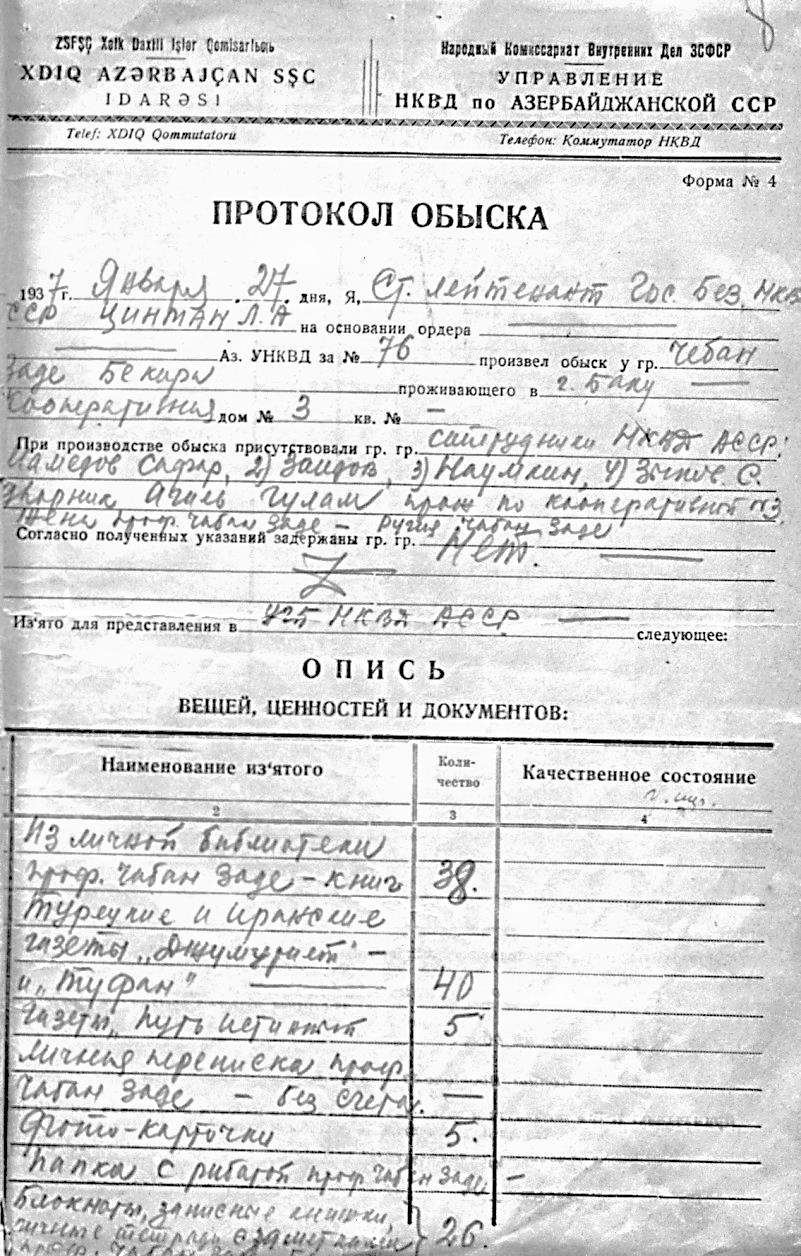 8
ZSFŞÇ Xalk Daxili Işlər Qomisarlьƣь
XDIQ AZƏRBAJÇAN SŞÇ
IDARƏSI
Telef: XDIQ Qommutatoru
Народный Комиссариат Внутренних Дел ЗСФСР
УПРАВЛЕНИЕ
НКВД по АЗЕРБАЙДЖАНСКОЙ ССР
Телефон: Коммутатор НКВД
Форма № 4
ПРОТОКОЛ ОБЫСКА
1937 г. Января 27 дня, Я, Ст. лейтенант Гос. Без. НКВД
ССР ЦИНМАН Л.А на основании ордера
Аз. УНКВД за № 76 произвел обыск у гр. Чебан
Заде Бекира проживающего в г. Баку
Кооперативная дом № 3 кв. № —
При производстве обыска присутствовали гр. гр. сотрудники НКВД АССР:
Мамедов Сафар, 2) Заидов, 3) Наумкин, 4) С.
Дворник Гулам прож по кооперативной №3
Жена проф. Чабан Заде — Ругия Чабан Заде
Согласно полученных указаний задержаны гр. гр. Нет.
Из'ято для представления в УГБ НКВД АССР следующее:
ОПИСЬ
ВЕЩЕЙ, ЦЕННОСТЕЙ И ДОКУМЕНТОВ:
Наименование из'ятого Коли-чество Качественное состояние
2 3 4
Из личной библиотеки
проф. Чабан Заде — книг 38.
Турецкие и иранские
газеты „Джумуриет" —
и „Туфан" 40
Газеты „Путь 5
Личная переписка проф.
Чабан Заде — без счета. —
Фото-карточки 5.
Папка с работой проф Чабан Заде —
Блокноты, записные книжки,
личные тетради с заметками } 26.
проф. Чабан Заде